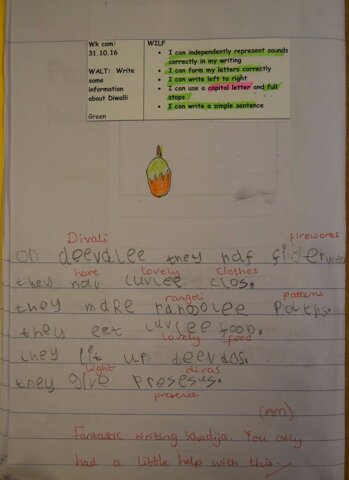 Wk com:
31.10.16
WALT: Write
some
information
about Diwalli
Green
WILF
I can independently represent sounds
correctly in my writing
I can form my letters correctly
I can write left to right
I can use a capital letter and full
stops
I can write a simple sentence
Divali fireworks
on deevalee they haf
have lovely clothes
they hav luvlee clos.
rangoli patterns
they make rangolee
they eet luvlee food.
lovely food
they lit up deevas.
light divas
they give presesus.
presents
(AM)
Fantastic writing Khadija. You only
had a little help with this.